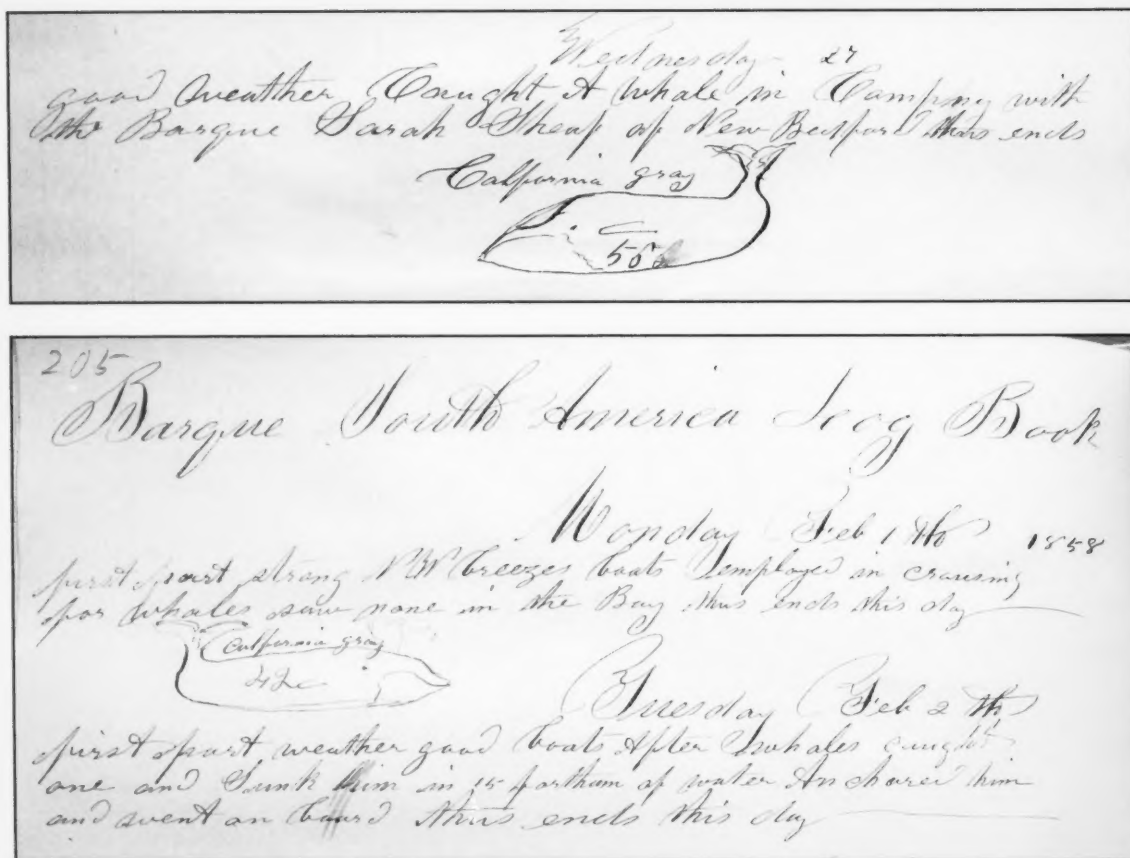 Wednesday 27
good weather Caught A whale in Compny with
the Barque Sarah Sheaf of New Bedford thus ends
Calfornia gray
205
Barque South America Loog Book
Monday Feb 1th 1858
first part strong NW breezes boats employed in crusing
for whales saw none in the Bay thus ends this day
Calfornia gray
Tuesday Feb 2 th
first part weather good boats After whales caught
one and Sunk him in 15 fartham of water Anchored him
and went on board thus ends this day